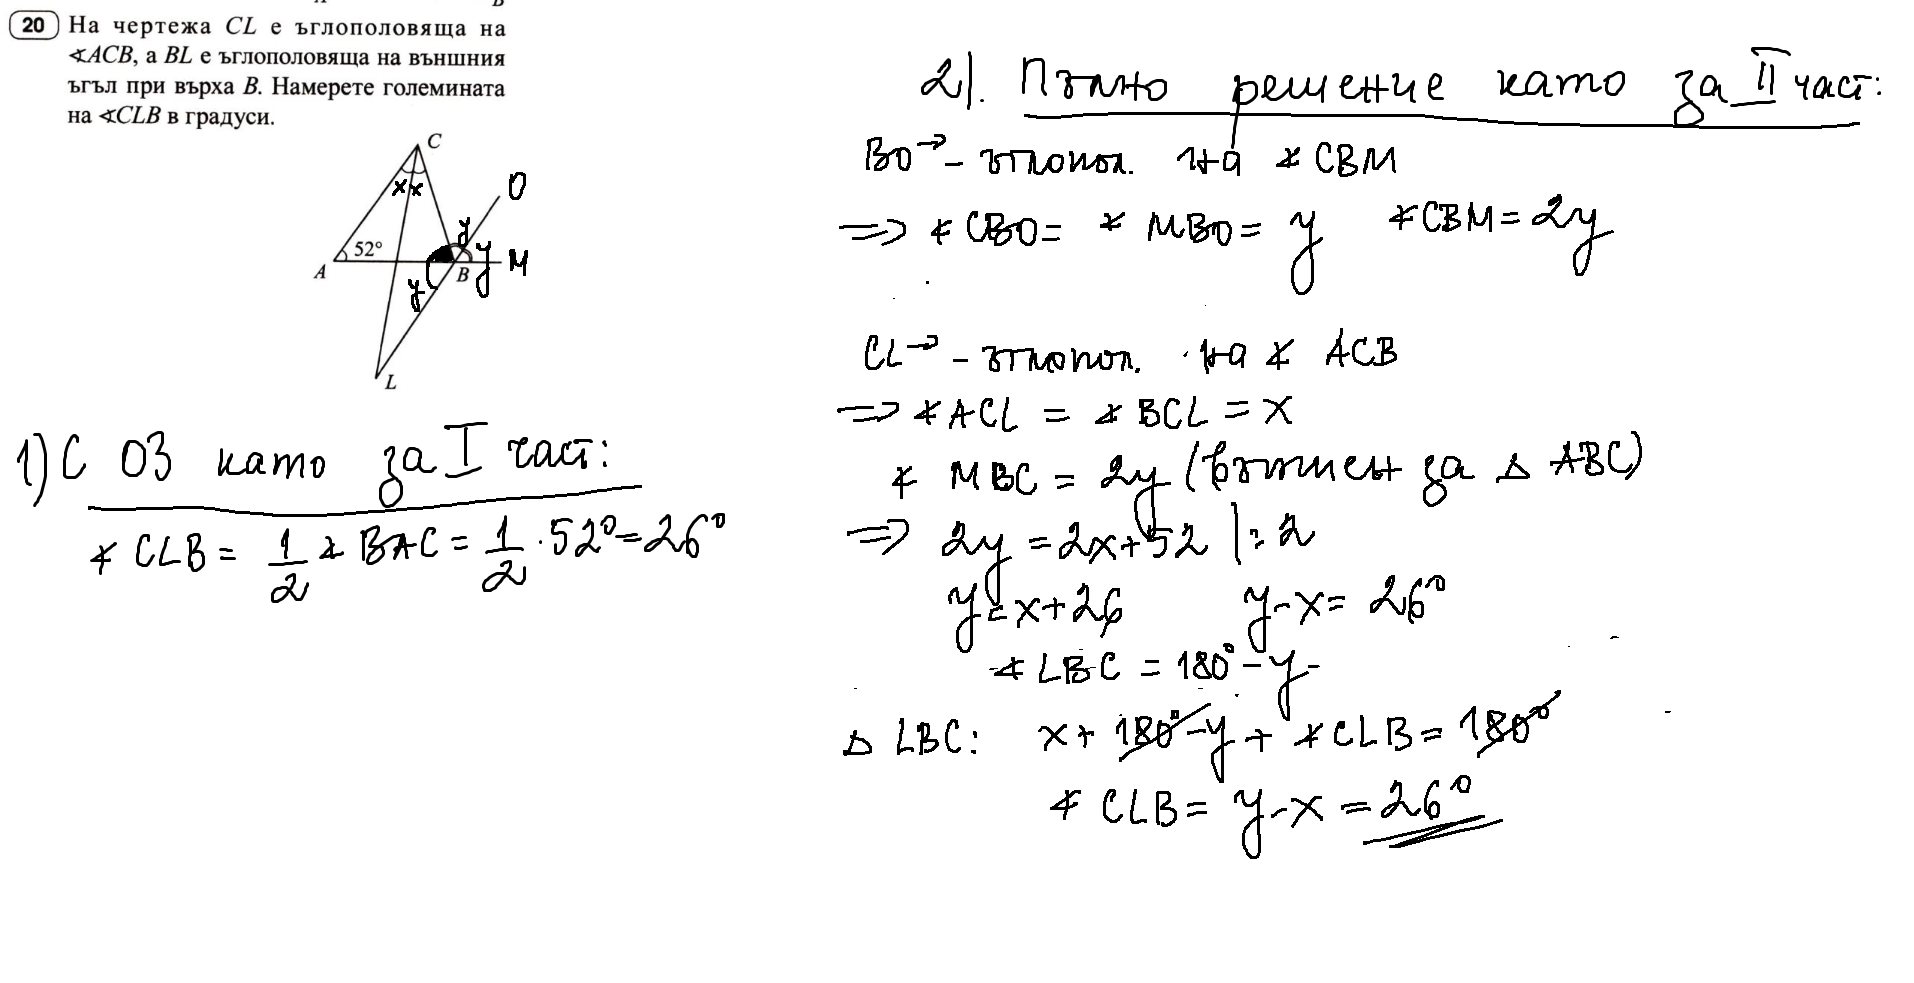 20 На чертежа CL е ъглополовяща на
∢ACB, а BL е ъглополовяща на външния
ъгъл при върха B. Намерете големината
на ∢CLB в градуси.
C
x x
O
y
52°
y
M
A
B
y
L
1) С ОЗ като за I част:
∢ CLB = 1/2 ∢ BAC = 1/2 · 52° = 26°
2). Пълно решение като за II част:
BO→ - ъглопол. на ∢ CBM
=> ∢ CBO = ∢ MBO = y ∢ CBM = 2y
CL→ - ъглопол. на ∢ ACB
=> ∢ ACL = ∢ BCL = x
∢ MBC = 2y (външен за △ ABC)
=> 2y = 2x + 52 |:2
y = x + 26 y - x = 26°
∢ LBC = 180° - y
△ LBC: x + 180° - y + ∢ CLB = 180°
∢ CLB = y - x = 26°